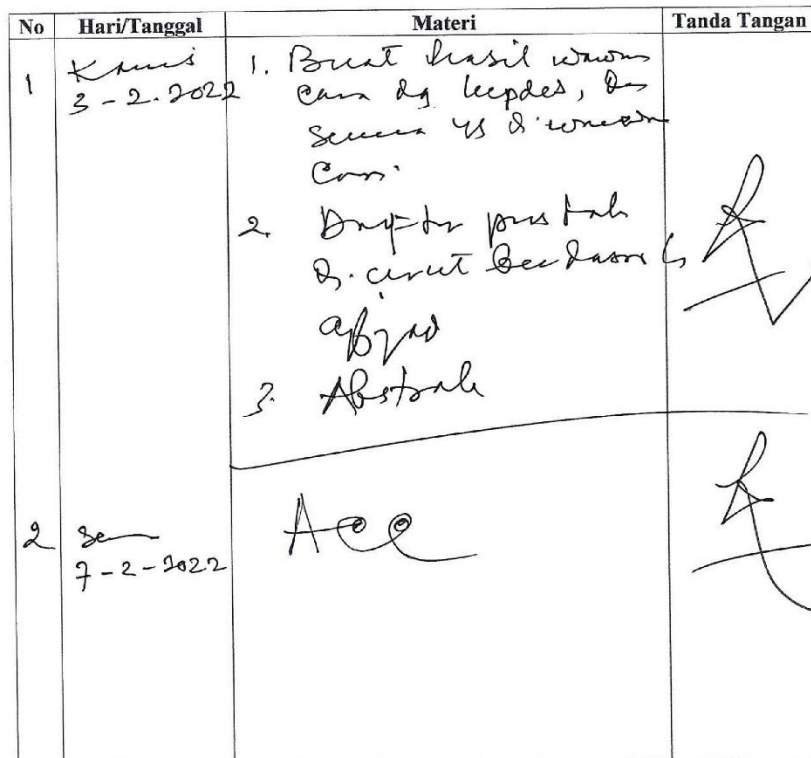 No Hari/Tanggal Materi Tanda Tangan
1 Kamis 1. Buat hasil wawan
3-2-2022 cara dg kepdes, dan
semua yg di wawan
cara.
2. Daftar pustak
di urut berdasar
abjad
3. Abstrak
2 Sen Acc
7-2-2022